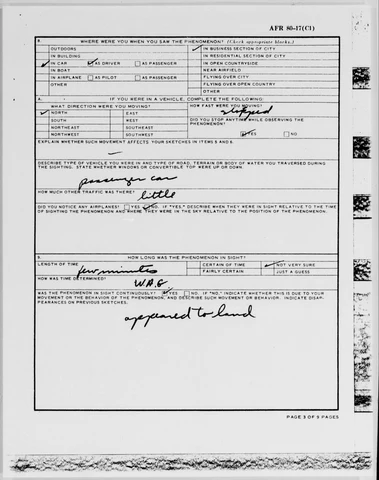 AFR 80-17(C1)
8. WHERE WERE YOU WHEN YOU SAW THE PHENOMENON? (Check appropriate blocks.)
OUTDOORS ✓ IN BUSINESS SECTION OF CITY
IN BUILDING IN RESIDENTIAL SECTION OF CITY
✓ IN CAR ✓ AS DRIVER AS PASSENGER IN OPEN COUNTRYSIDE
IN BOAT NEAR AIRFIELD
IN AIRPLANE AS PILOT AS PASSENGER FLYING OVER CITY
OTHER FLYING OVER OPEN COUNTRY
OTHER
A. IF YOU WERE IN A VEHICLE, COMPLETE THE FOLLOWING:
WHAT DIRECTION WERE YOU MOVING? HOW FAST WERE YOU MOVING?
✓ NORTH EAST stopped
SOUTH WEST DID YOU STOP ANYTIME WHILE OBSERVING THE
NORTHEAST SOUTHEAST PHENOMENON?
NORTHWEST SOUTHWEST ✓ YES NO
EXPLAIN WHETHER SUCH MOVEMENT AFFECTS YOUR SKETCHES IN ITEMS 5 AND 6.
—
DESCRIBE TYPE OF VEHICLE YOU WERE IN AND TYPE OF ROAD, TERRAIN OR BODY OF WATER YOU TRAVERSED
DURING THE SIGHTING. STATE WHETHER WINDOWS OR CONVERTIBLE TOP WERE UP OR DOWN.
passenger car
HOW MUCH OTHER TRAFFIC WAS THERE?
little
DID YOU NOTICE ANY AIRPLANES? YES ✓ NO. IF "YES," DESCRIBE WHEN THEY WERE IN SIGHT RELATIVE TO THE TIME
OF SIGHTING THE PHENOMENON AND WHERE THEY WERE IN THE SKY RELATIVE TO THE POSITION OF THE PHENOMENON.
9. HOW LONG WAS THE PHENOMENON IN SIGHT?
LENGTH OF TIME CERTAIN OF TIME ✓ NOT VERY SURE
few minutes FAIRLY CERTAIN JUST A GUESS
HOW WAS TIME DETERMINED?
W.A.G.
WAS THE PHENOMENON IN SIGHT CONTINUOUSLY? ✓ YES NO. IF "NO," INDICATE WHETHER THIS IS DUE TO YOUR
MOVEMENT OR THE BEHAVIOR OF THE PHENOMENON, AND DESCRIBE SUCH MOVEMENT OR BEHAVIOR. INDICATE DISAP-
PEARANCES ON PREVIOUS SKETCHES.
appeared to land
PAGE 3 OF 5 PAGES